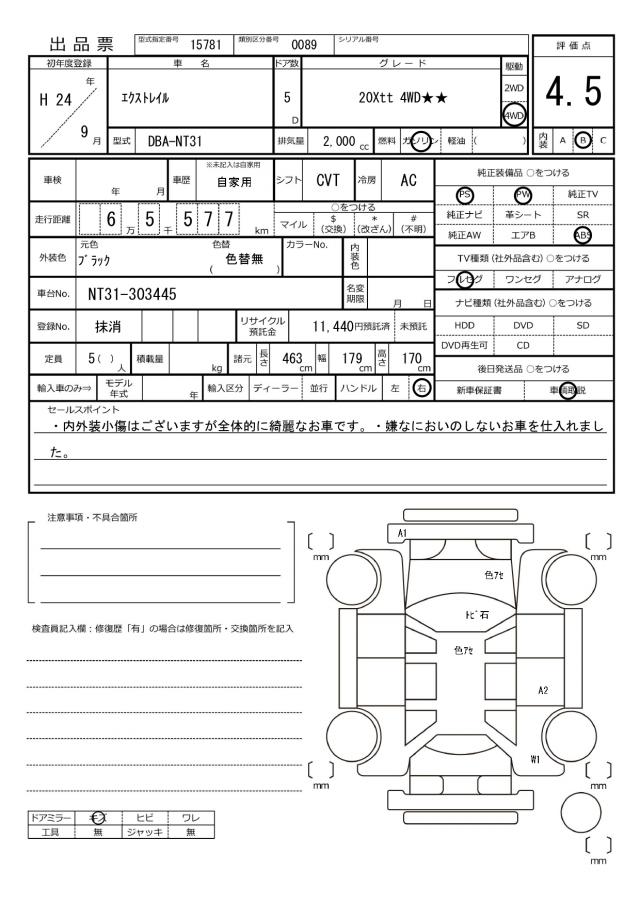 出品票 型式指定番号 15781 類別区分番号 0089 シリアル番号
初年度登録 車名 ドア数 グレード 駆動 評価点
H 24 年 9 月 エクストレイル 5 D 20Xtt 4WD★★ 2WD 4WD 4.5
型式 DBA-NT31 排気量 2,000 cc 燃料 ガソリン 軽油 ( ) 内装 A B C
車検 年 月 車歴 ※未記入は自家用 自家用 シフト CVT 冷房 AC
走行距離 6 万 5 千 5 7 7 km ○をつける マイル $(交換) *(改ざん) #(不明)
外装色 元色 ブラック 色替 ( 色替無 ) カラーNo. 内装色
車台No. NT31-303445 名変期限 月 日
登録No. 抹消 リサイクル預託金 11,440円預託済 未預託
定員 5( ) 人 積載量 kg 諸元 長さ 463 cm 幅 179 cm 高さ 170 cm
輸入車のみ⇒ モデル年式 年 輸入区分 ディーラー 並行 ハンドル 左 右
純正装備品 ○をつける
PS PW 純正TV
純正ナビ 革シート SR
純正AW エアB ABS
TV種類 (社外品含む) ○をつける
フルセグ ワンセグ アナログ
ナビ種類 (社外品含む) ○をつける
HDD DVD SD
DVD再生可 CD
後日発送品 ○をつける
新車保証書 車輌取説
セールスポイント
・内外装小傷はございますが全体的に綺麗なお車です。・嫌なにおいのしないお車を仕入れまし
た。
注意事項・不具合箇所
検査員記入欄：修復歴「有」の場合は修復箇所・交換箇所を記入
ドアミラー キズ ヒビ ワレ
工具 無 ジャッキ 無
A1
[ ] mm [ ] mm
色アセ
トビ石
色アセ
A2
W1
[ ] mm [ ] mm
[ ] mm